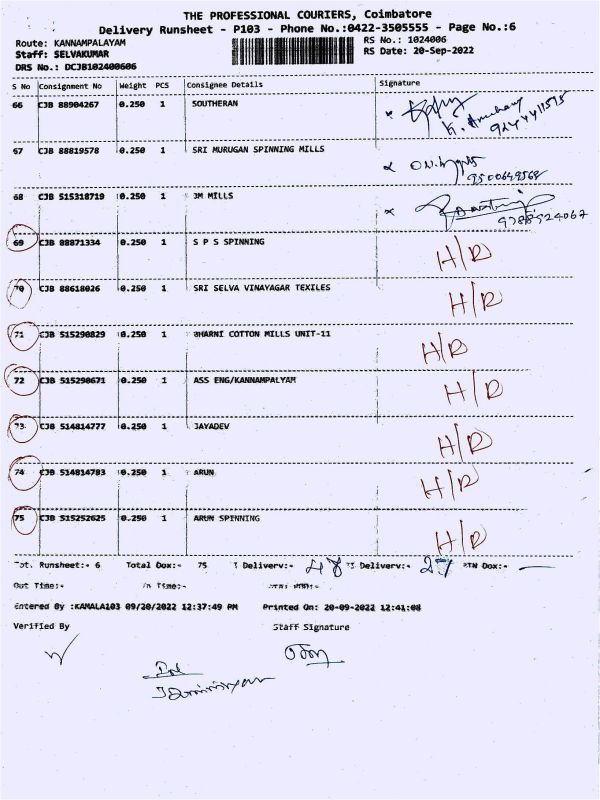 THE PROFESSIONAL COURIERS, Coimbatore
Delivery Runsheet - P103 - Phone No.:0422-3505555 - Page No.:6
Route: KANNAMPALAYAM RS No.: 1024006
Staff: SELVAKUMAR RS Date: 20-Sep-2022
DRS No.: DCJB102400606
S No Consignment No Weight PCS Consignee Details Signature
66 CJB 88904267 0.250 1 SOUTHERAN
67 CJB 88819578 0.250 1 SRI MURUGAN SPINNING MILLS
9500649568
68 CJB 515318719 0.250 1 JM MILLS
9788924067
69 CJB 88871334 0.250 1 S P S SPINNING H/R
70 CJB 88618026 0.250 1 SRI SELVA VINAYAGAR TEXILES H/R
71 CJB 515290829 0.250 1 BHARNI COTTON MILLS UNIT-11 H/R
72 CJB 515298671 0.250 1 ASS ENG/KANNAMPALYAM H/R
73 CJB 514814777 0.250 1 JAYADEV H/R
74 CJB 514814783 0.250 1 ARUN H/R
75 CJB 515252625 0.250 1 ARUN SPINNING H/R
Tot. Runsheet:- 6 Total Dox:- 75 Delivery:- 48 Delivery:- 27 RTN Dox:- —
Out Time:- In Time:-
Entered By :KAMALA103 09/20/2022 12:37:49 PM Printed On: 20-09-2022 12:41:08
Verified By Staff Signature